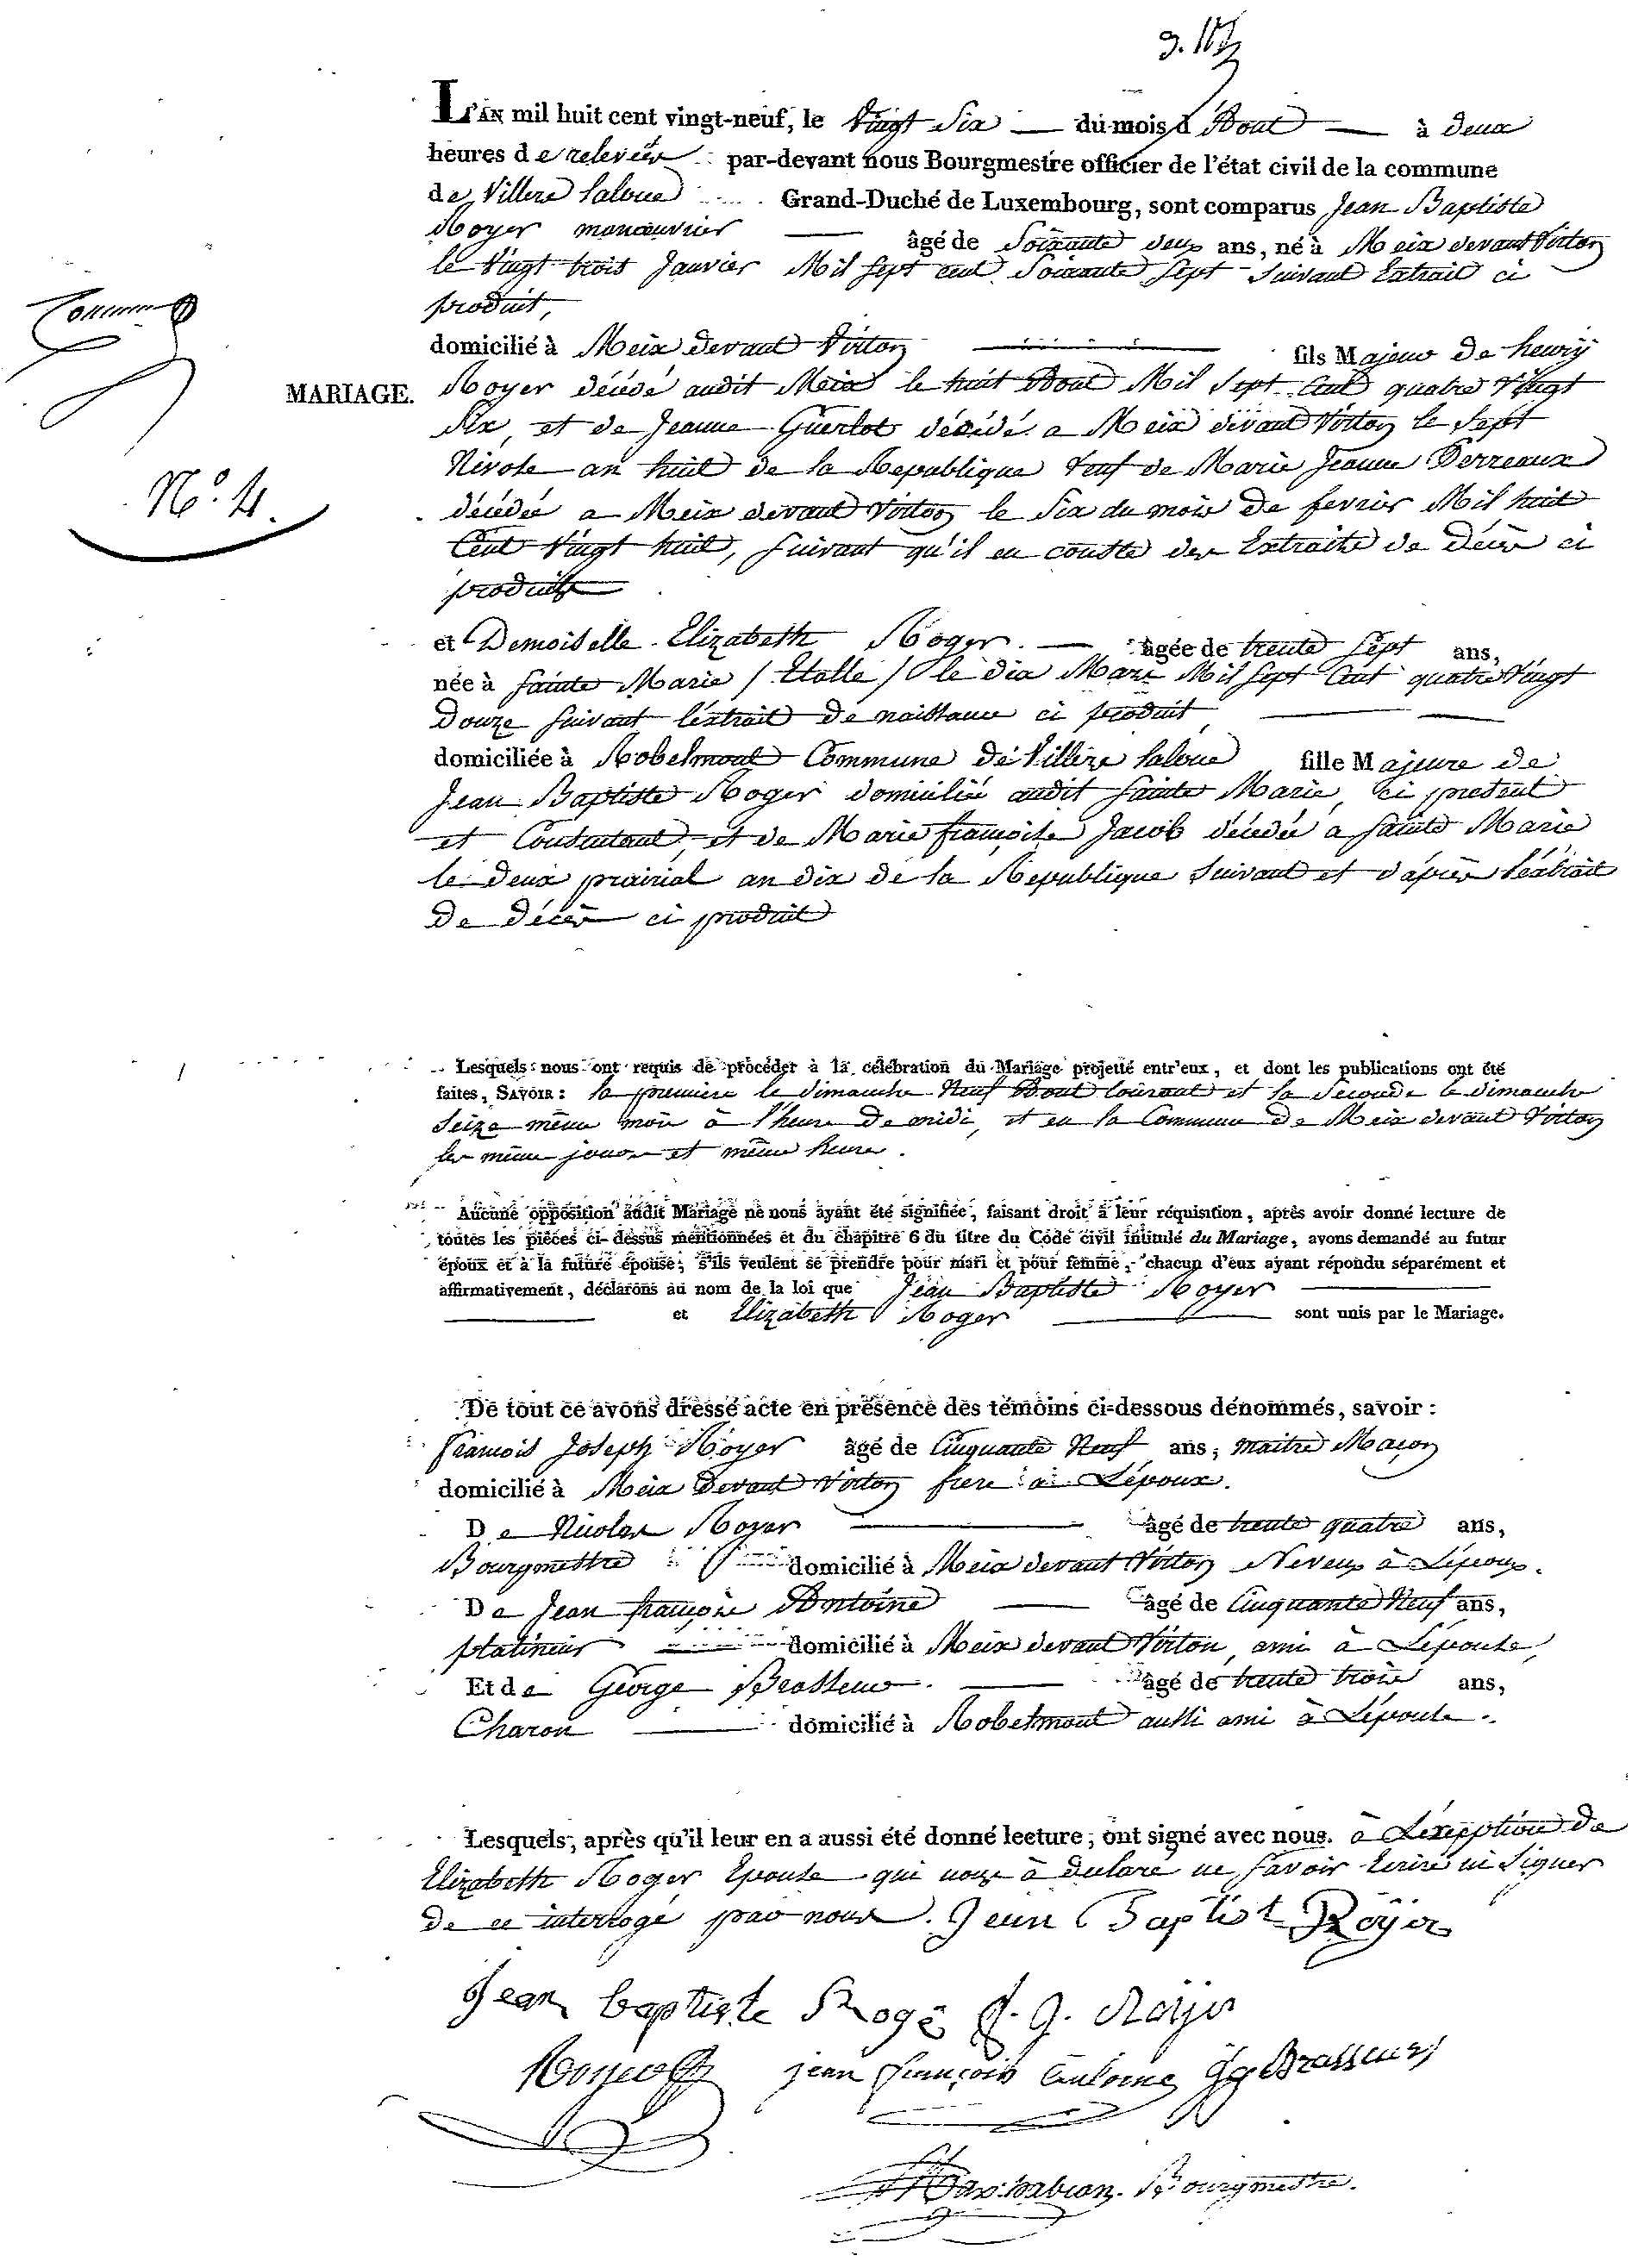 L'AN mil huit cent vingt-neuf, le Vingt Six du mois d'Aout à deux
heures de relevée par-devant nous Bourgmestre officier de l'état civil de la commune
de Villers laloue Grand-Duché de Luxembourg, sont comparus Jean Baptiste
Royer manœuvrier âgé de Soixante deux ans, né à Meix devant Virton
le Vingt trois Janvier Mil Sept cent Soixante Sept Suivant Extrait ci
produit,
domicilié à Meix devant Virton fils Majeur de henrÿ
MARIAGE. Royer décédé audit Meix le huit Aout Mil Sept Cent quatre Vingt
Six, et de Jeanne Guerlot décédé a Meix devant Virton le Sept
Nivose an huit de la Republique veuf de Marie Jeanne Perreaux
N.° 4. décédée a Meix devant Virton le Six du mois de fevrier Mil huit
Cent Vingt huit, Suivant qu'il en conste des Extraits de Décès ci
produits
et Demoiselle Elizabeth Roger âgée de trente Sept ans,
née à Sainte Marie / Etalle / le dix Mars Mil Sept Cent quatre Vingt
Douze Suivant l'éxtrait de naissance ci produit
domiciliée à Robelmont Commune de Villers laloue fille Majeure de
Jean Baptiste Roger domicilié audit Sainte Marie, ci present
et Consentant, et de Marie françoise Jacob décédée a Sainte Marie
le deux prairial an dix de la Republique Suivant et d'après l'éxtrait
de décès ci produit
Lesquels nous ont requis de procéder à la célébration du Mariage projetté entr'eux, et dont les publications ont été
faites, SAVOIR: la premiere le dimanche Neuf Aout Courant et la Seconde le dimanche
Seize même mois à l'heure de midi, et en la Commune de Meix devant Virton
les même jours et même heure.
Aucune opposition audit Mariage ne nous ayant été signifiée, faisant droit à leur réquisition, après avoir donné lecture de
toutes les pièces ci-dessus mentionnées et du chapitre 6 du titre du Code civil intitulé du Mariage, avons demandé au futur
époux et à la future épouse; s'ils veulent se prendre pour mari et pour femme, chacun d'eux ayant répondu séparément et
affirmativement, déclarons au nom de la loi que Jean Baptiste Royer
et Elizabeth Roger sont unis par le Mariage.
De tout ce avons dressé acte en présence des témoins ci-dessous dénommés, savoir:
francois Joseph Royer âgé de Cinquante Neuf ans, maitre Maçon
domicilié à Meix devant Virton frere a Lépoux.
De Nicolas Royer âgé de trente quatre ans,
Bourgmestre domicilié à Meix devant Virton Neveux à Lépoux.
De Jean françois Antoine âgé de Cinquante Neuf ans,
platineur domicilié à Meix devant Virton, ami à Lépouse,
Et de George Brasseur âgé de trente trois ans,
Charon domicilié à Robelmont aussi ami à Lépouse.
Lesquels, après qu'il leur en a aussi été donné lecture, ont signé avec nous. à Léxeption de
Elizabeth Roger Epouse qui nous à declaré ne Savoir Ecrire ni Signer
de ce interrogé par nous. Jean Baptist Röÿer
Jean baptiste Rogé f. J. Roÿer
jean françois Antoine Brasseur
Bourgmestre.